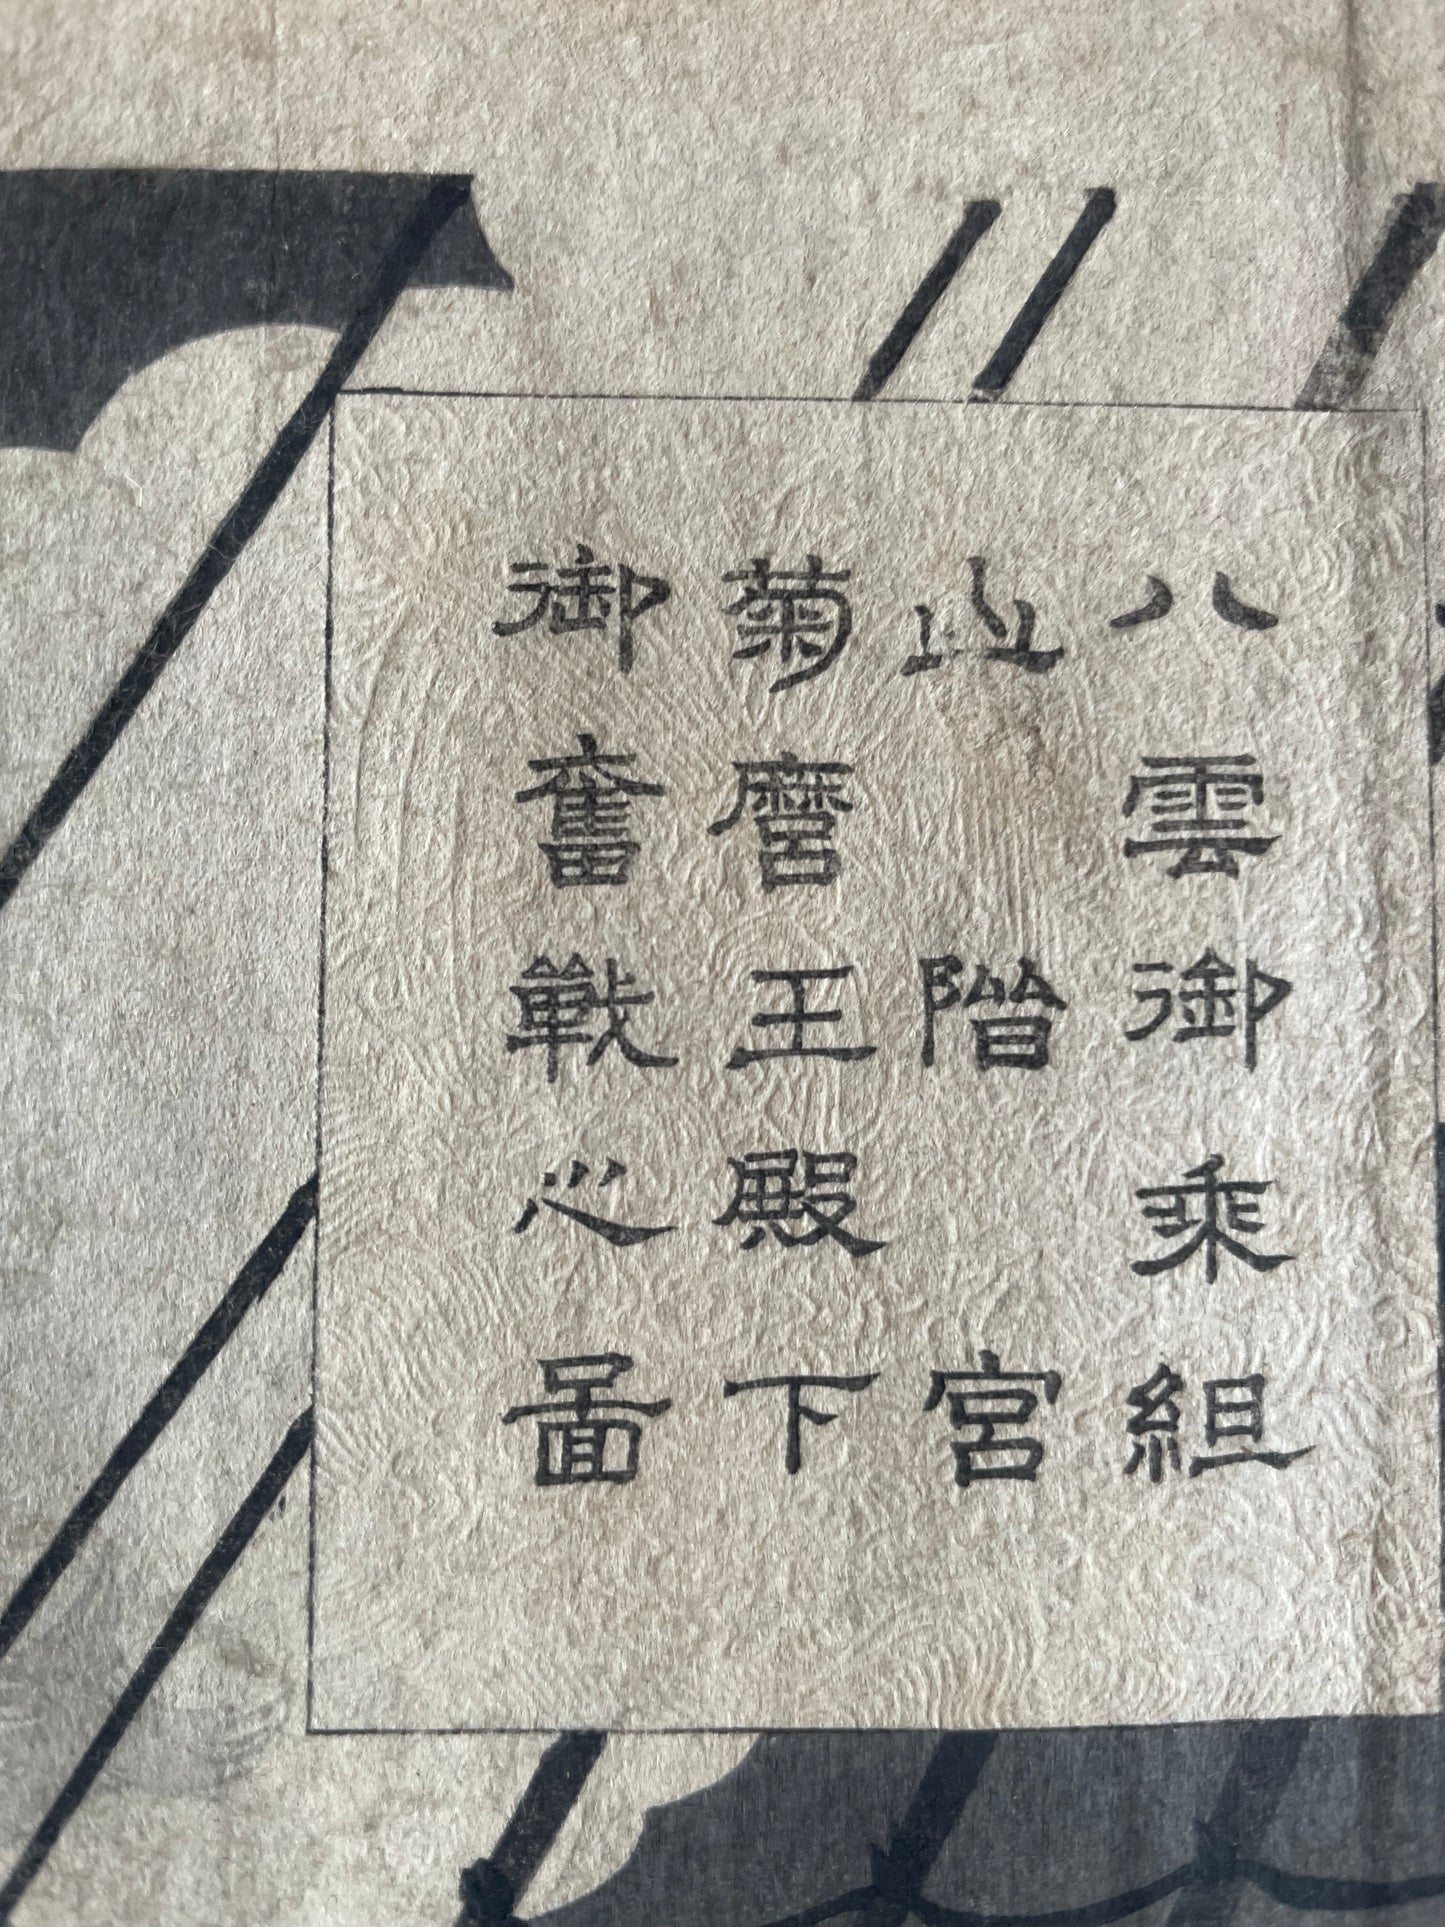 八雲御乗組
山階宮
菊麿王殿下
御奮戰之圖